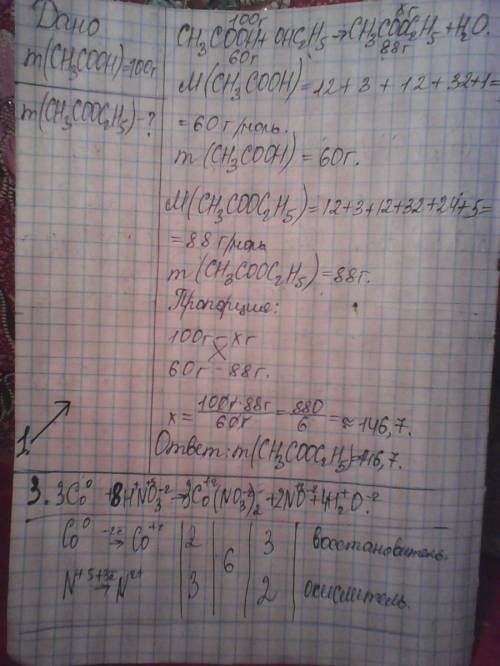 Дано
m(CH₃COOH)=100г
m(CH₃COOC₂H₅)-?
100г xг
CH₃COOH+OHC₂H₅→CH₃COOC₂H₅+H₂O.
60г 88г
M(CH₃COOH)=12+3+12+32+1=
=60г/моль.
m(CH₃COOH)=60г.
M(CH₃COOC₂H₅)=12+3+12+32+24+5=
=88г/моль
m(CH₃COOC₂H₅)=88г.
Пропорция:
100г - xг
60г - 88г.
x = 100г·88г/60г = 880/6 = ≈146,7.
Ответ: m(CH₃COOC₂H₅)=146,7.
1.
3. 3Co⁰+8H⁺N⁺⁵O₃⁻²→3Co⁺²(NO₃)₂⁻+2N⁺²O⁻²+4H₂⁺O⁻².
Co⁰ -2e→ Co⁺² | 2 | 6 | 3 | восстановитель.
N⁺⁵ +3e→ N²⁺ | 3 | | 2 | окислитель.